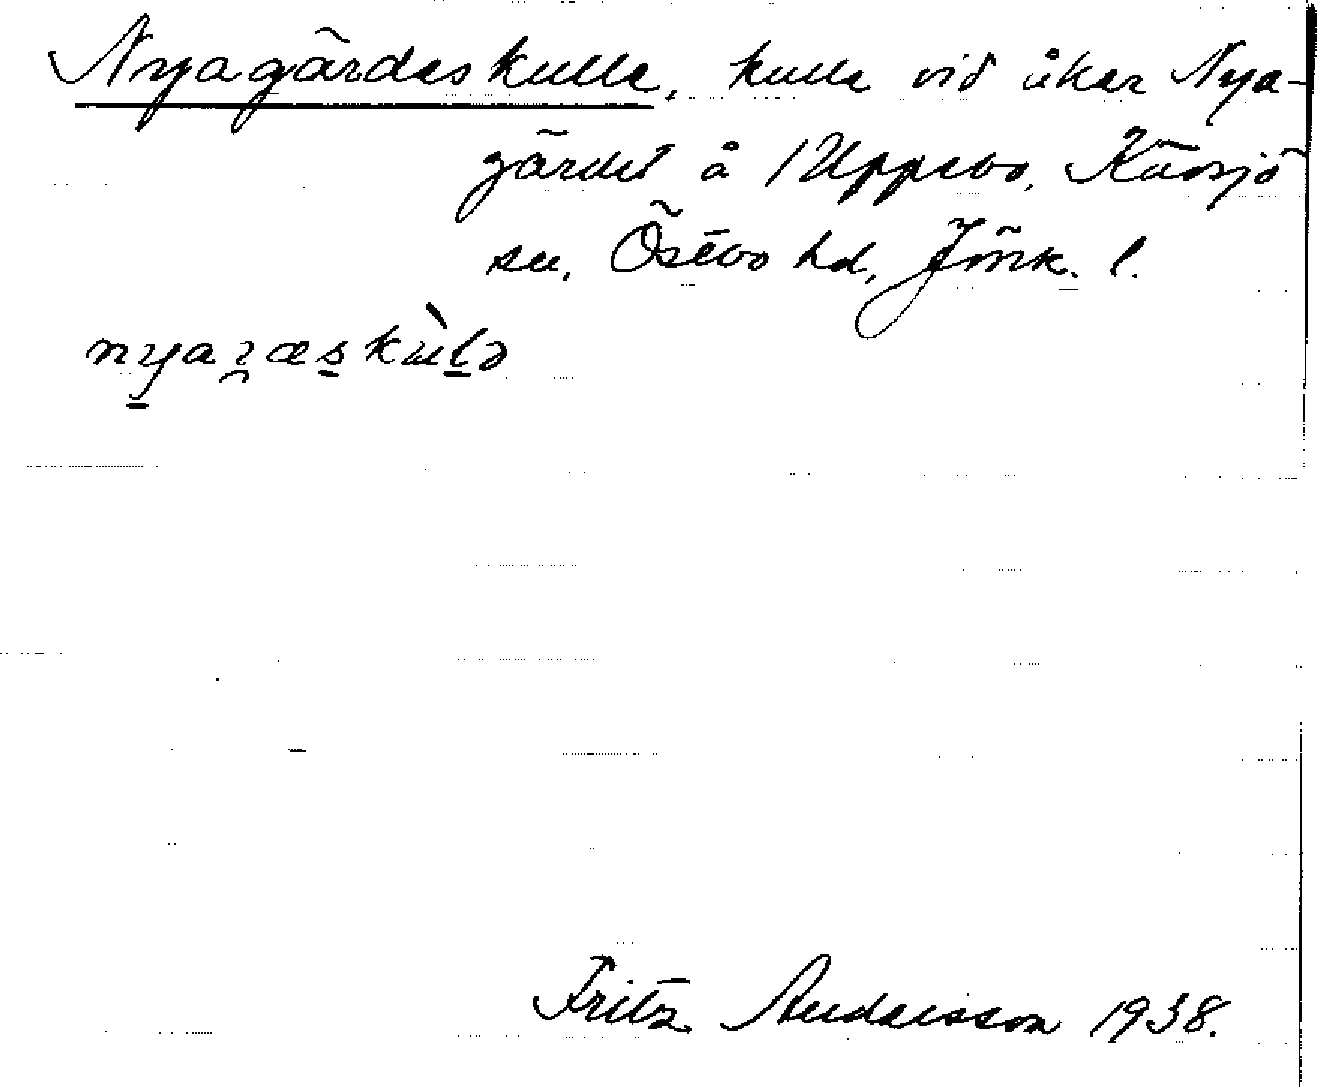 Nyagärdeskulle, kulle vid åker Nya-
gärdet å 1 Uppebo, Kävsjö
sn, Östbo hd, Jönk. l.
Fritz Andersson 1938.